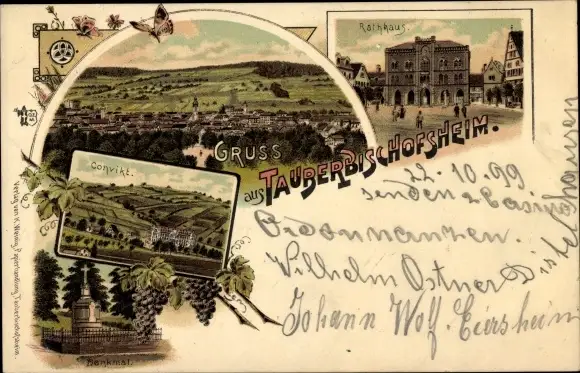 Rathhaus.
GRUSS
aus TAUBERBISCHOFSHEIM.
Convikt.
Denkmal.
22.10.99
senden
Ordonnanzen
Wilhelm Ostner Distelhausen
Johann Wolf Eiersheim